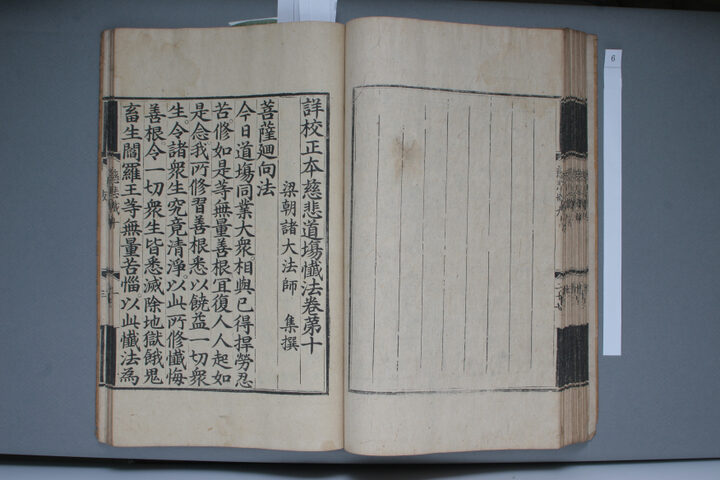 詳校正本慈悲道場懺法卷第十
梁朝諸大法師 集撰
菩薩廻向法
今日道場同業大衆相與已得捍勞忍
苦修如是等無量善根冝復人人起如
是念我所修習善根悉以饒益一切衆
生令諸衆生究竟清淨以此所修懺悔
善根令一切衆生皆悉滅除地獄餓鬼
畜生閻羅王等無量苦惱以此懺法爲
6